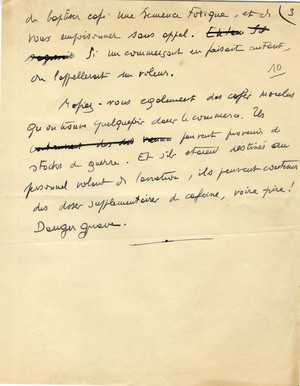 de baptiser café une semence torique, et de (3
vous empoisonner sans appel.
Si un commerçant en faisait autant,
on l'appellerait un voleur. 10
Méfiez-vous également des cafés moulus
qu'on trouve quelquefois dans le commerce. Ils
peuvent provenir de
stocks de guerre. Et s'ils étaient destinés au
personnel volant de l'aviation, ils peuvent contenir
des doses supplémentaires de caféine, voire pire!
Danger grave.